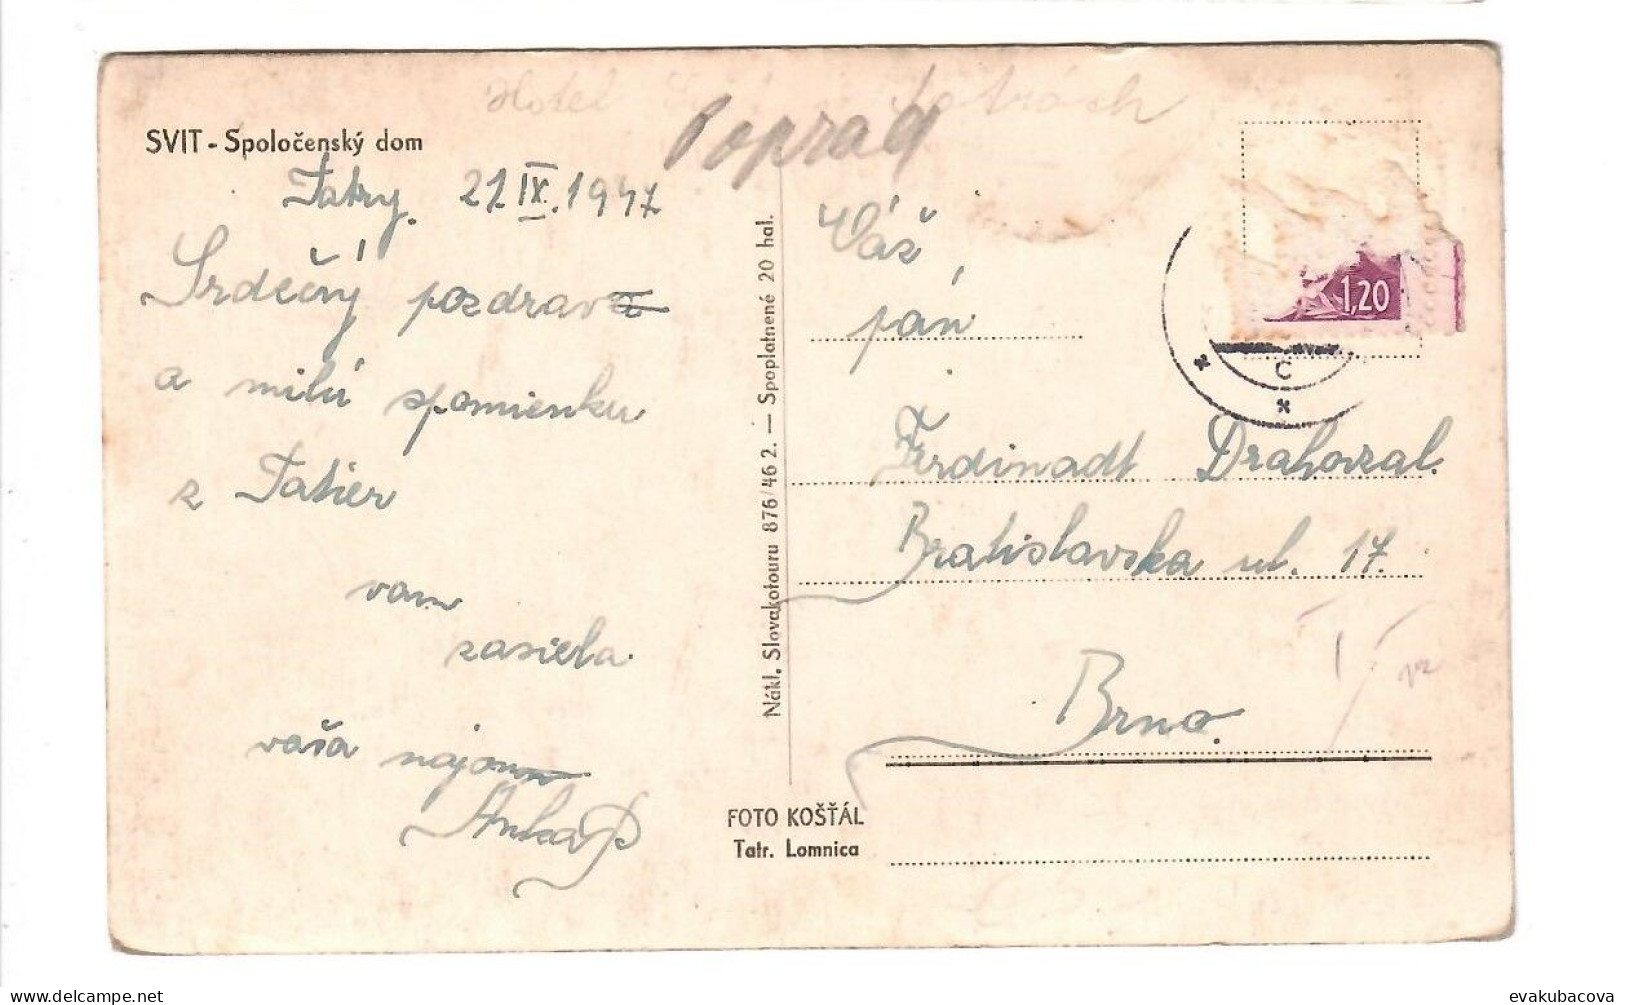 Hotel Tatrách
Poprad
SVIT - Spoločenský dom
Tatry. 21.IX.1947.
Srdečný pozdrav
a milú spomienku
z Tatier
vam
zasiela.
vaša
Anka P
Nákl. Slovakotouru 876/46 2. — Spoplatnené 20 hal.
FOTO KOŠŤÁL
Tatr. Lomnica
1,20
C
Váž.
pán
Ferdinadt Drahovzal.
Bratislavska ul. 17.
Brno.
evakubacova